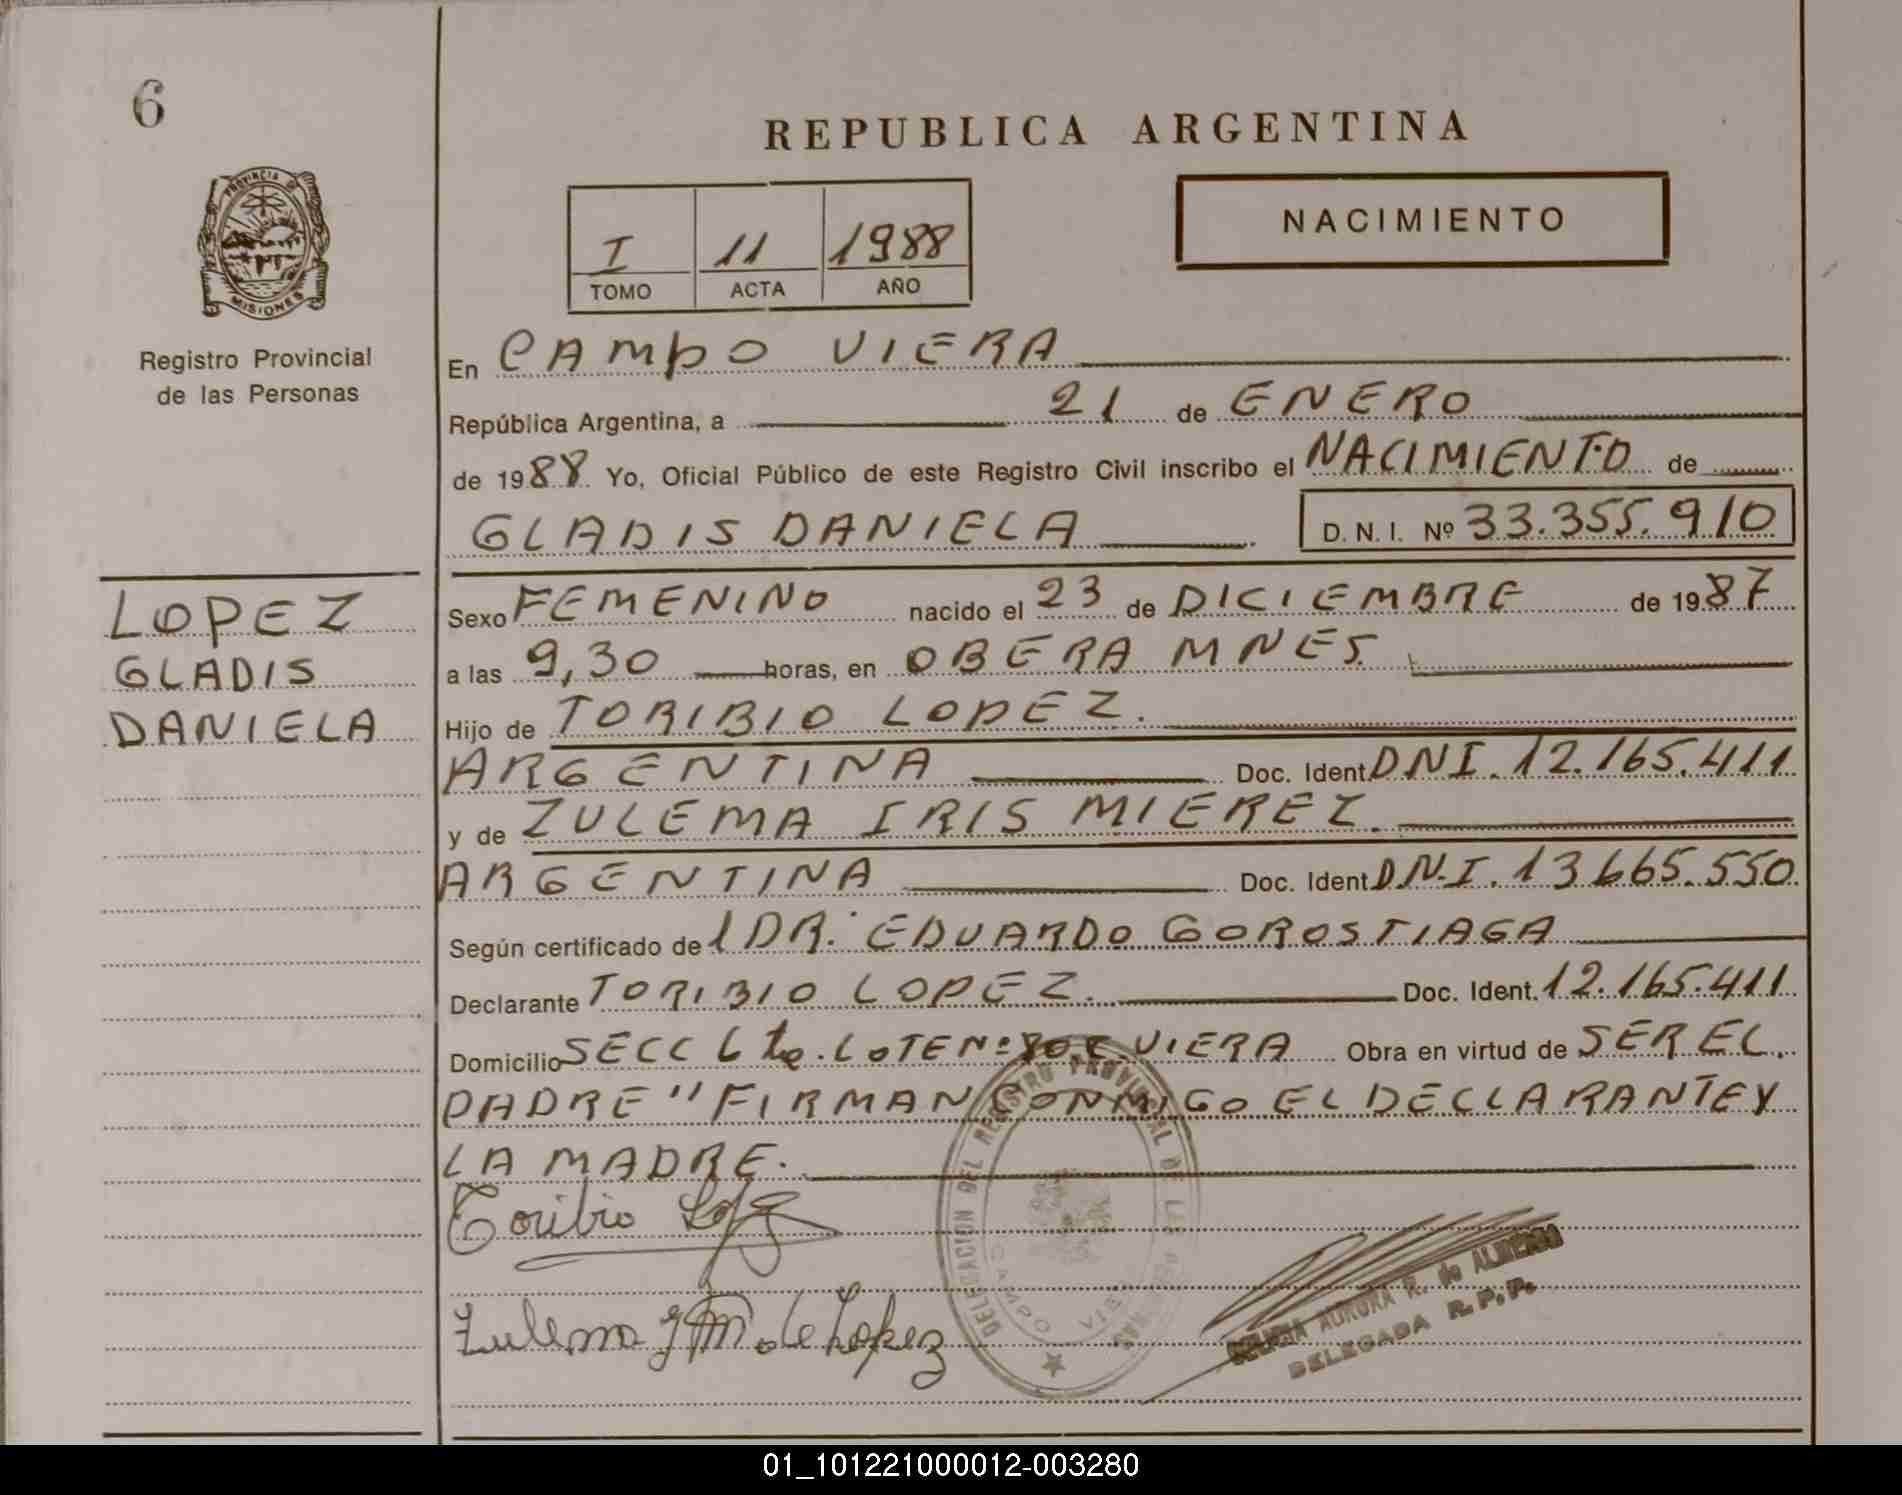 6
REPUBLICA ARGENTINA
PROVINCIA DE
MISIONES
I 11 1988
TOMO ACTA AÑO
NACIMIENTO
Registro Provincial
de las Personas
En CAMPO VIERA
República Argentina, a 21 de ENERO
de 1988 Yo, Oficial Público de este Registro Civil inscribo el NACIMIENTO de
GLADIS DANIELA D. N. I. Nº 33.355.910
LOPEZ
GLADIS
DANIELA
Sexo FEMENINO nacido el 23 de DICIEMBRE de 1987
a las 9,30 horas, en OBERA MNES.
Hijo de TORIBIO LOPEZ.
ARGENTINA Doc. Ident. DNI. 12.165.411
y de ZULEMA IRIS MIEREZ.
ARGENTINA Doc. Ident. DN.I. 13.665.550
Según certificado de l DR. EDUARDO GOROSTIAGA
Declarante TORIBIO LOPEZ. Doc. Ident. 12.165.411
Domicilio SECC 6ta. LOTE Nº 80 C. VIERA Obra en virtud de SER EL.
PADRE" FIRMAN CONMIGO EL DECLARANTE Y
LA MADRE.
Toribio Lopez
Zulema I M de Lopez
DELEGACION DEL REGISTRO PROVINCIAL DE LAS
CAMPO VIERA
AURORA R. de
DELEGADA R.P.P.
01_101221000012-003280